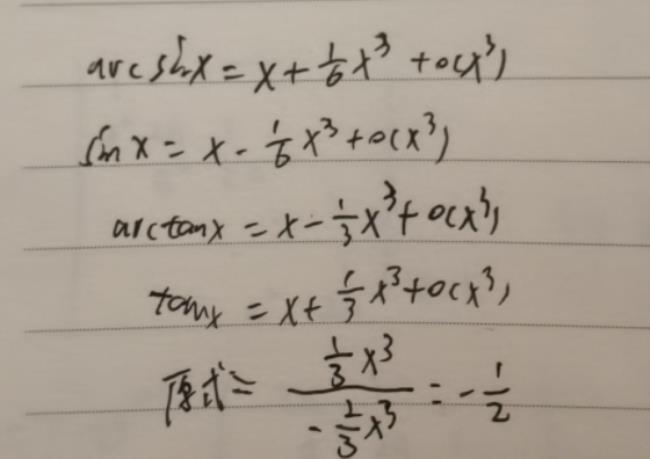 arcsinx = x + 1/6 x³ + o(x³)
sinx = x - 1/6 x³ + o(x³)
arctanx = x - 1/3 x³ + o(x³)
tanx = x + 1/3 x³ + o(x³)
原式 = (1/3 x³)/(-2/3 x³) = -1/2